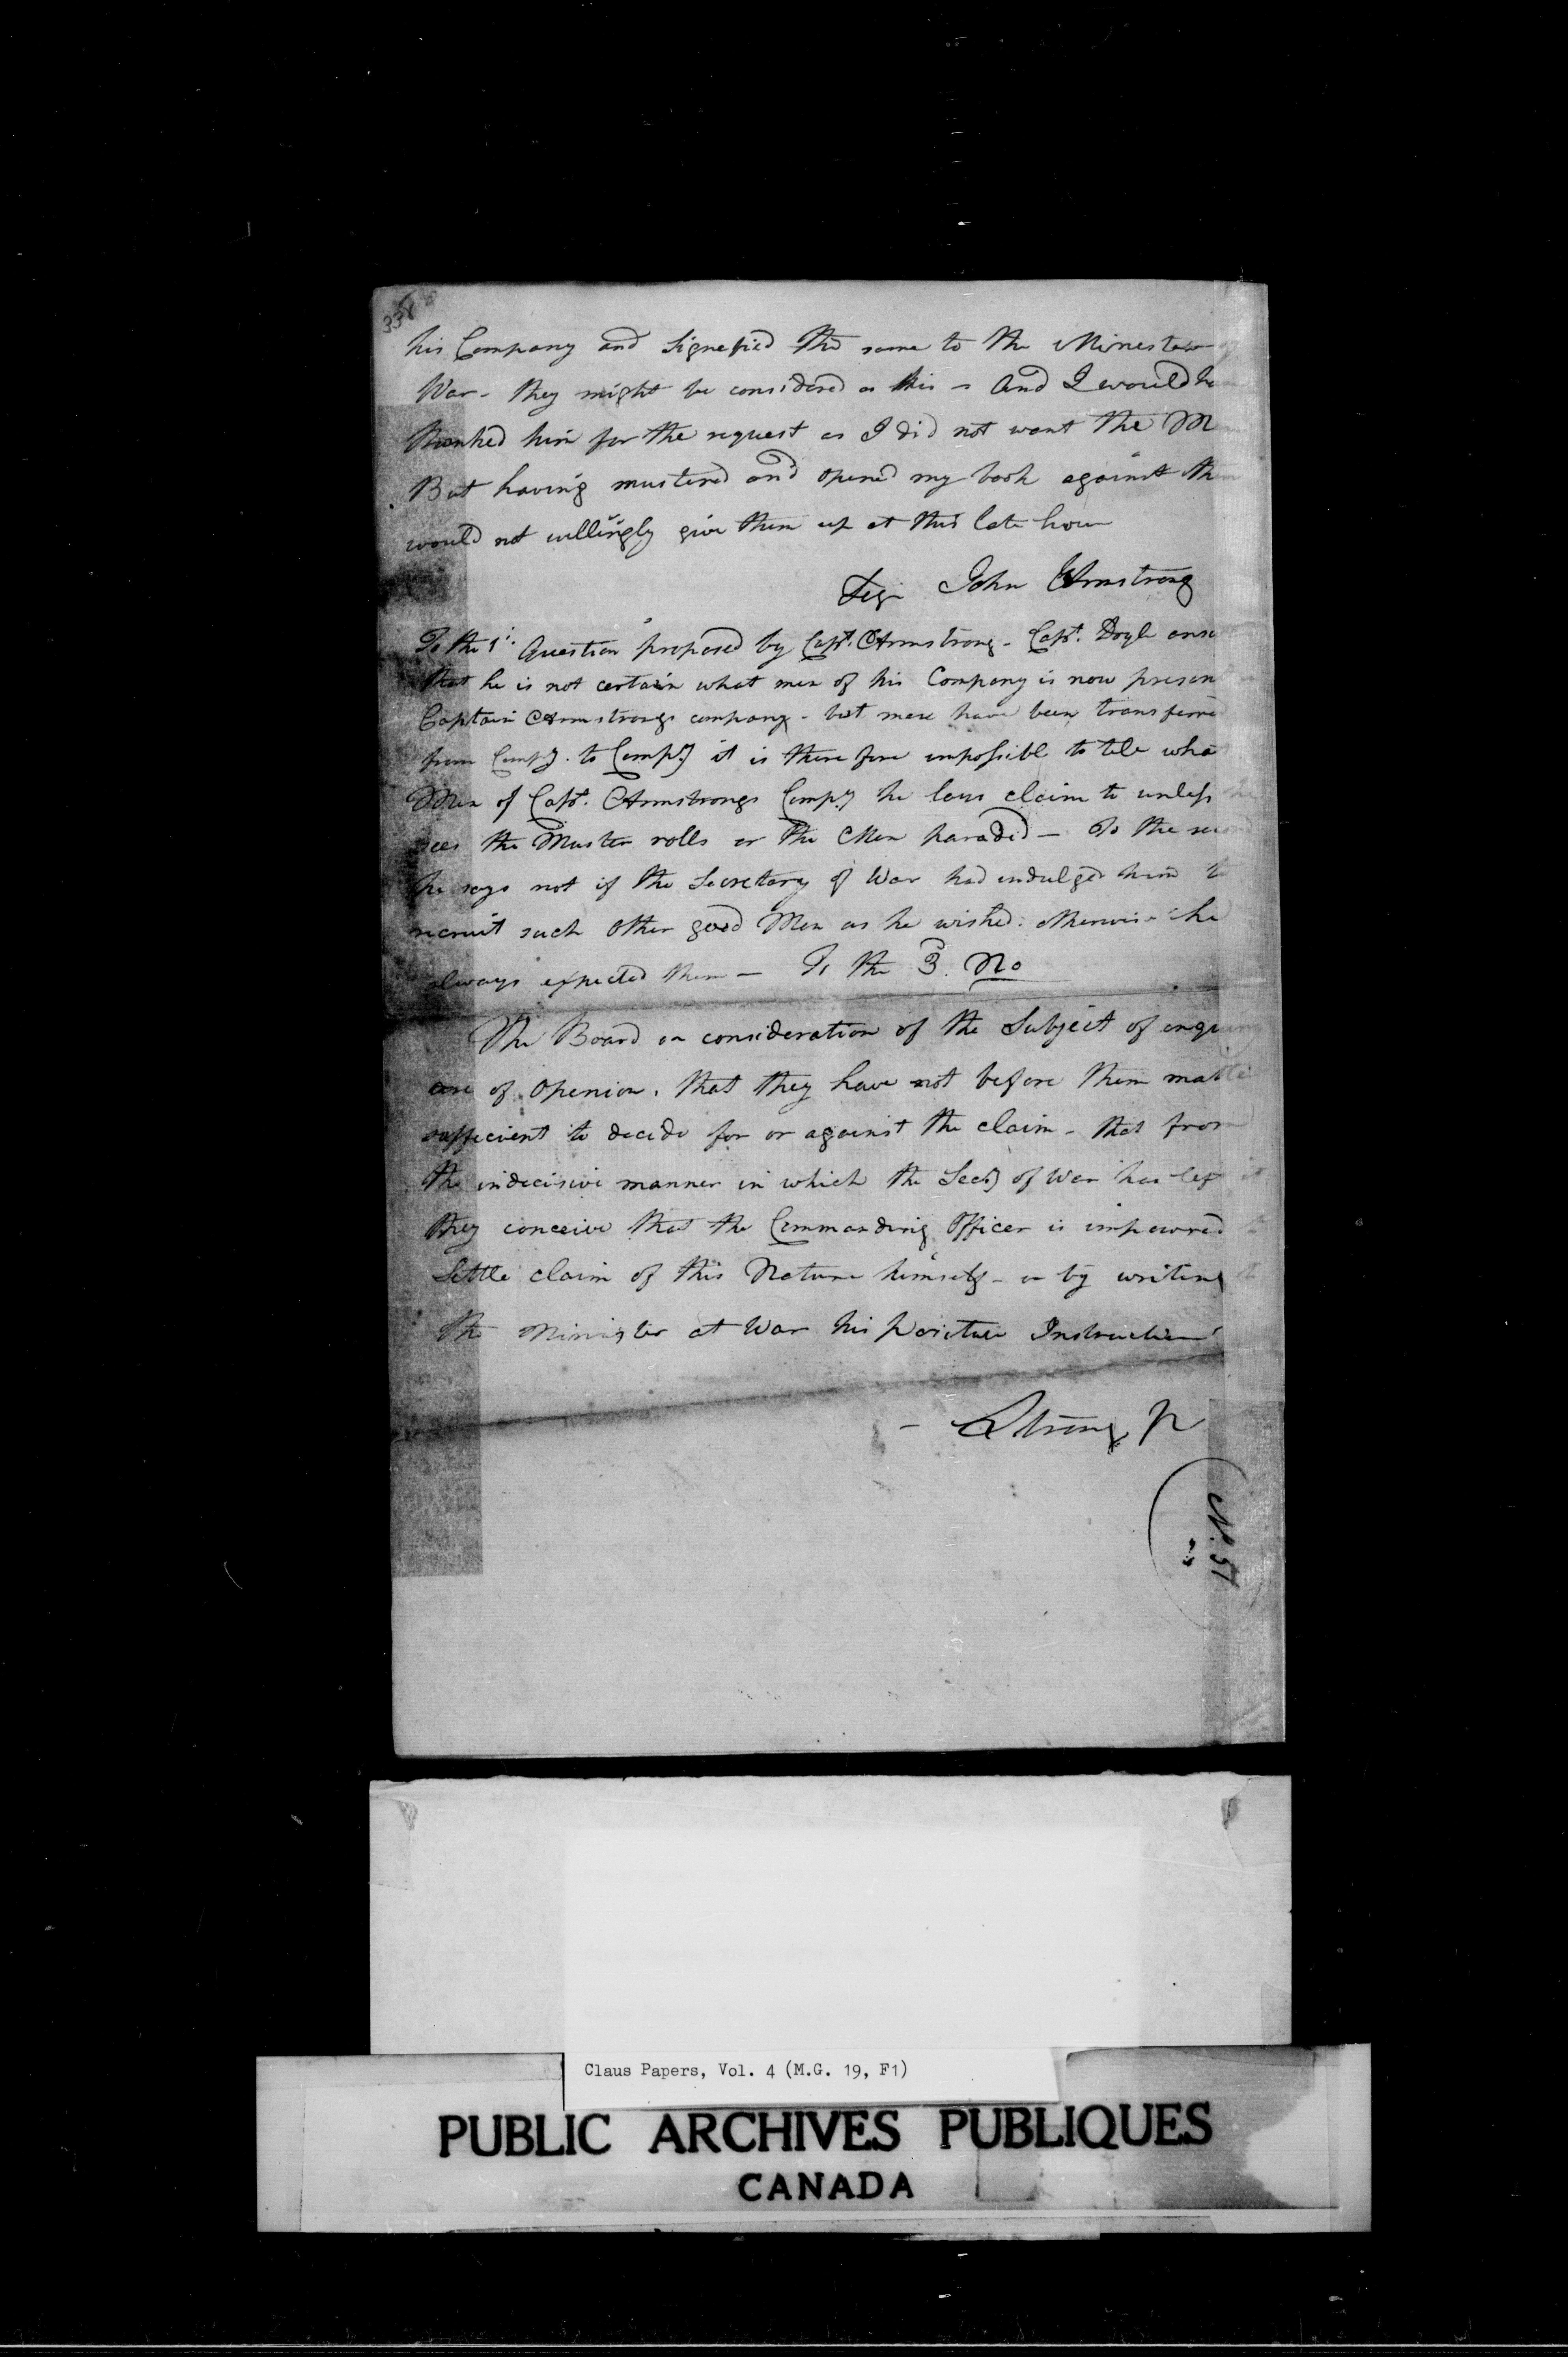 338
his Company and Signefied the same to the Minester
War - they might be considered as his - And I would
thanked him for the request as I did not want the
But having mustered and opened my book against
would not willingly give them up at this late hour
Sign John Armstrong
To the 1st. Question proposed by Capt. Armstrong - Capt. Doyle
that he is not certain what men of his Company is now
Captain Armstrongs company - but men have been
from Compy. to Compy it is therefore impossible to tele
Men of Capt. Armstrongs Compy he lays claim to unless
sees the Muster rolls or the Men paraded - To the
he says not if the Secretary of War had indulged him
recruit such other good Men as he wished. otherwise he
always expected them - To the 3. No
The Board on consideration of the Subject of
are of Openion, that they have not before them
suffecient to decide for or against the claim - that from
the indecisive manner in which the Secy of War has left it
they conceive that the Commanding Officer is impowred
Settle claim of this Nature himself - or by writing
the Minister at War his positive Instructions
Strong P
No. 51
Claus Papers, Vol. 4 (M.G. 19, F1)
PUBLIC ARCHIVES PUBLIQUES
CANADA